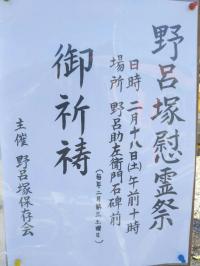 野呂塚慰霊祭
日時 二月十八日(土)午前十時
場所 野呂助左衛門石碑前
(毎年二月第三土曜日)
御祈祷
主催 野呂塚保存会